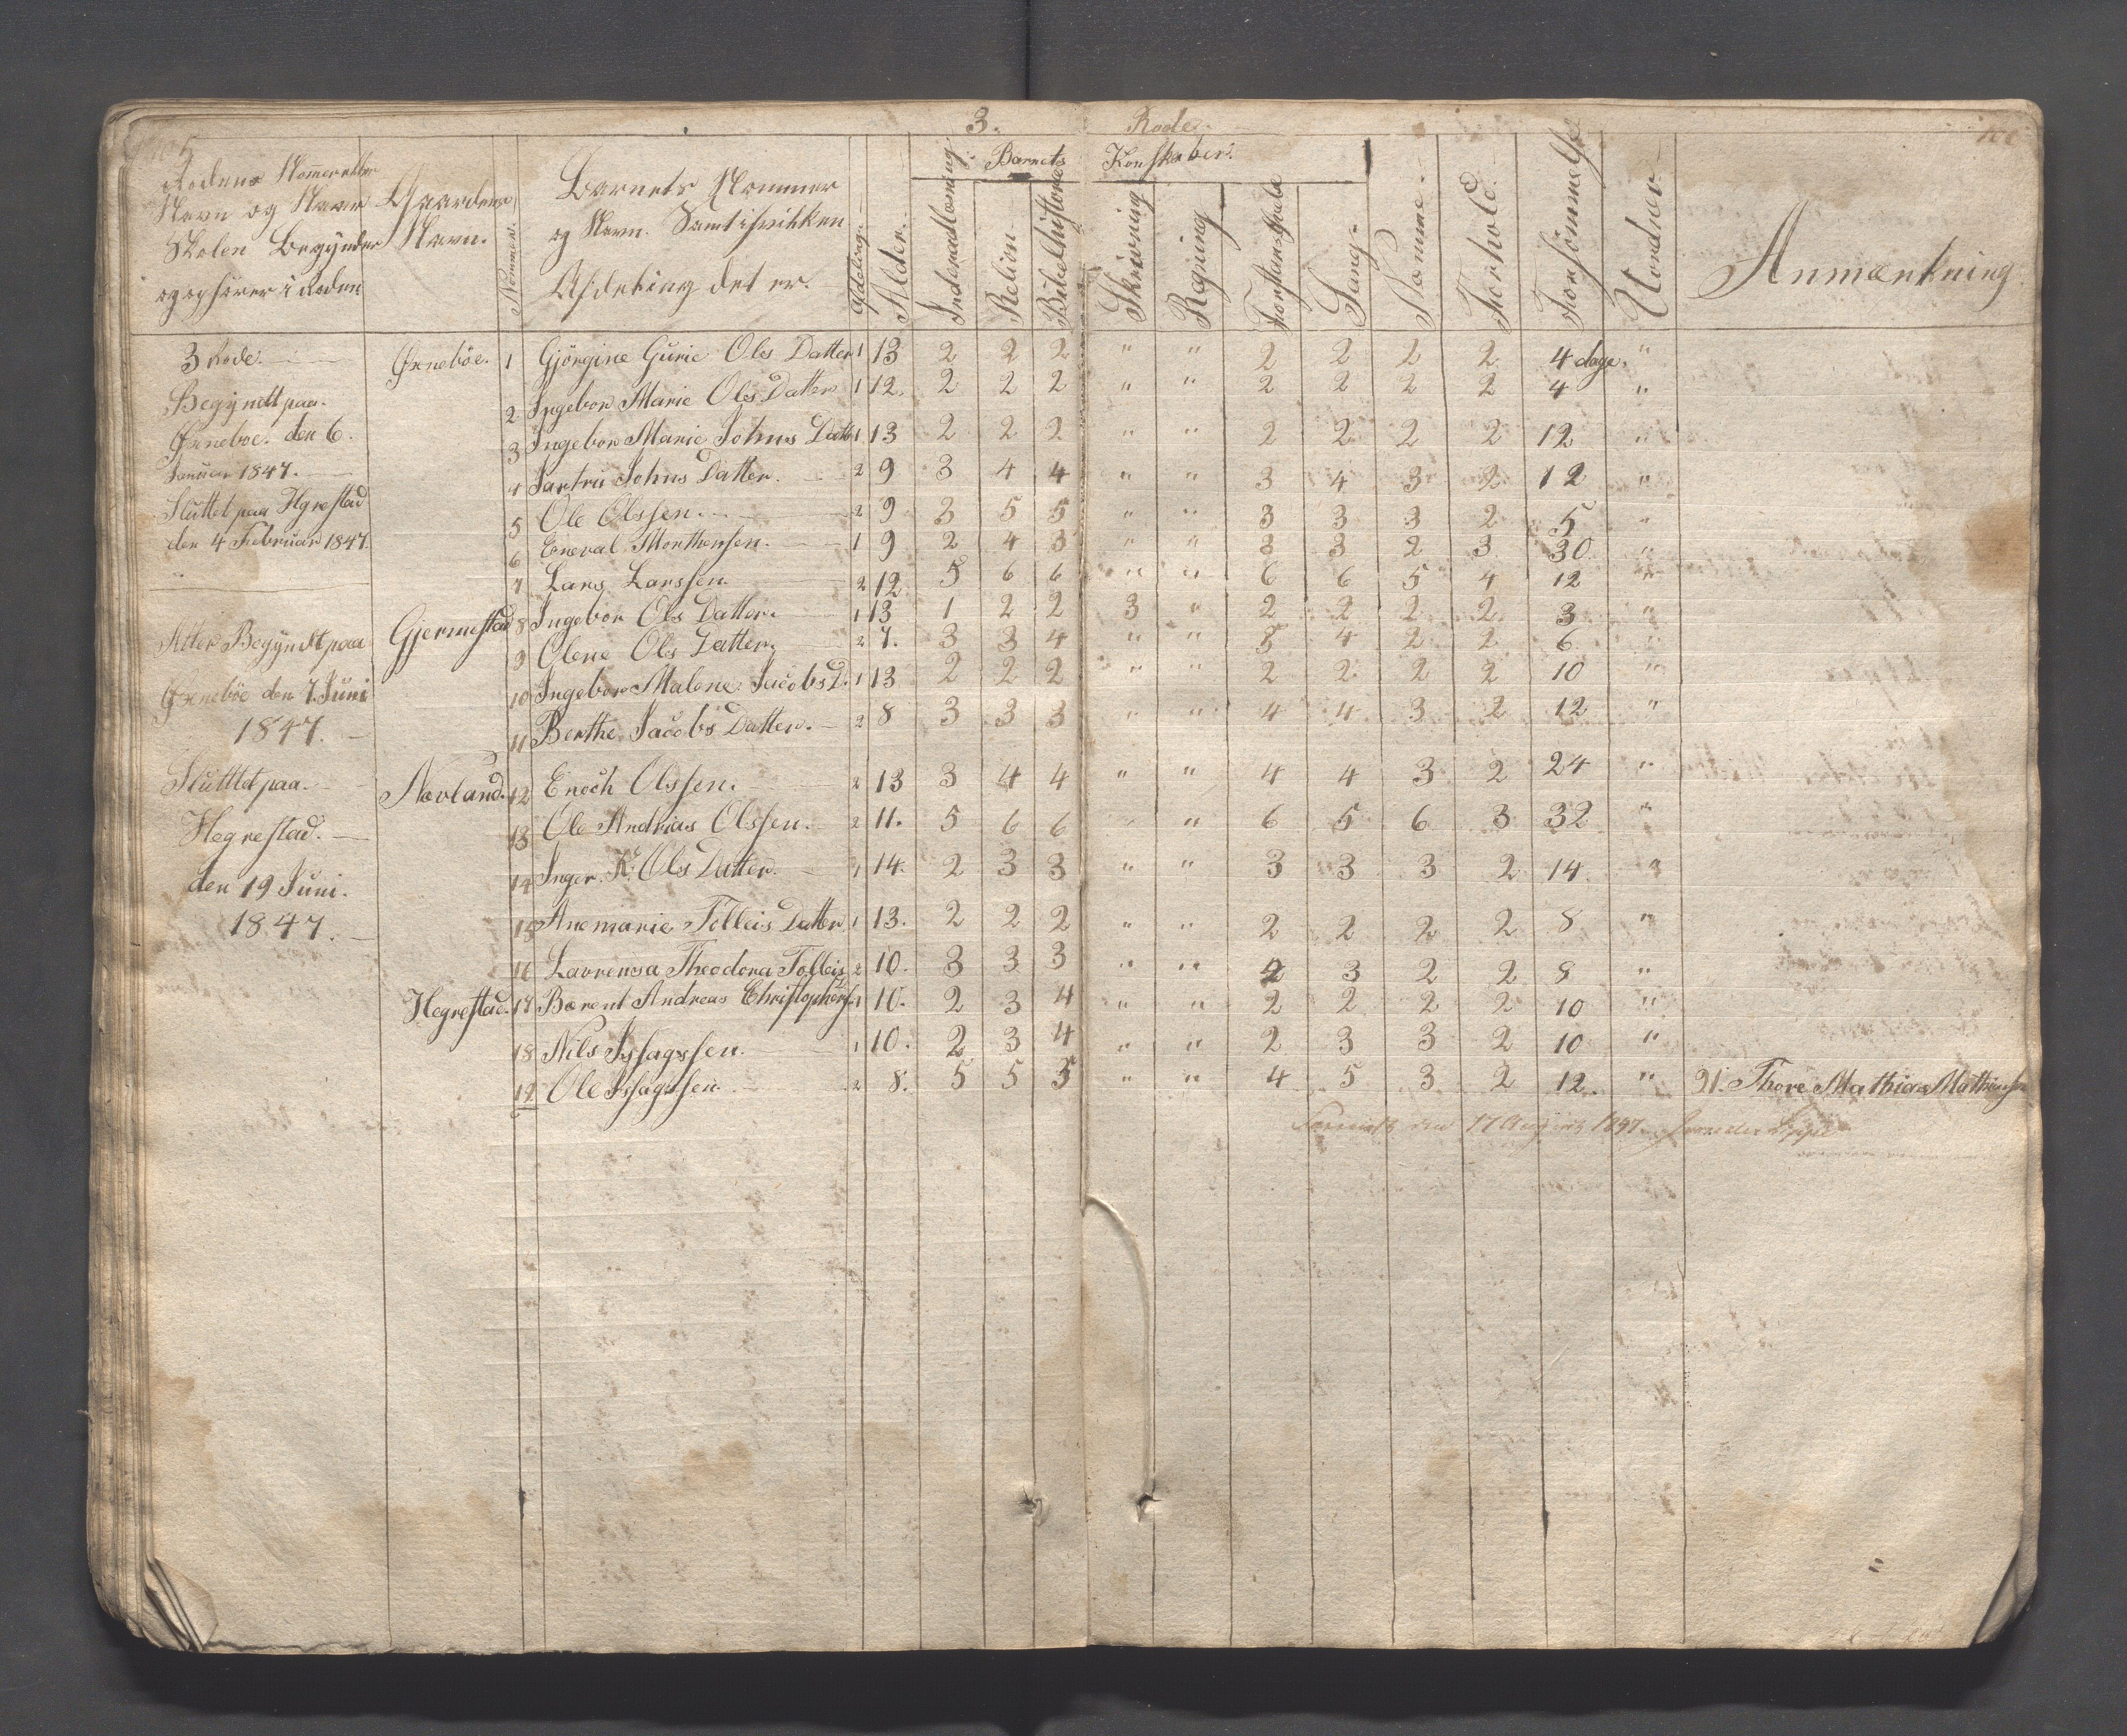 3. Rode.
Rodens Nommer eller
Navn og Naar
Skolen Begynder
og ophører i Roden
Gaardens
Navn.
Nommer.
Barnets Nommer
og Navn. Samt i hvilken
Afdeling det er.
Afdeling.
Alder.
Barnets Konskaber.
Indenadlæsning
Relion
Bibelhistorie
Skrivning
Regning
Forstandsøvelse
Sang
Nemme
Forhold
Forsømmelse
Udmærkning
3 Rode. Øxneböe. 1 Gjörgine Gurie Ols Datter 1 13 2 2 2 " " 2 2 2 2 4 dage. "
Begyndt paa. 2 Ingebor Marie Ols Datter 1 12. 2 2 2 " " 2 2 2 2 4 "
Øxneboe. den 6. 3 Ingebor Marie Johns Datter 1 13 2 2 2 " " 2 2 2 2 12 "
Januar 1847. 4 Sartru Johns Datter. 2 9 3 4 4 " " 3 4 3 2 12 "
Sluttet paa Hgrestad 5 Ole Olssen. 2 9 3 5 5 " " 3 3 3 2 5 "
den 4 Februar 1847. 6 Eneval Morthensen. 1 9 2 4 3 " " 3 3 2 3 30 "
7 Lars Larssen. 2 12 5 6 6 " " 6 6 5 4 12 "
Gjermestad 8 Ingebor Ols Datter. 1 13 1 2 2 3 " 2 2 2 2 3 "
Atter Begyndt paa 9 Olene Ols Datter. 2 7. 3 3 4 " " 3 4 2 2 6 "
Øxneböe den 7 Juni 10 Ingebor Malene Jacobs D. 1 13 2 2 2 " " 2 2 2 2 10 "
1847. 11 Berthe Jacobs Datter. 2 8 3 3 3 " " 4 4 3 2 12 "
Sluttet paa. Navland. 12 Enoch Olssen. 2 13 3 4 4 " " 4 4 3 2 24 "
Hegrestad. 13 Ole Andrias Olssen. 2 11. 5 6 6 " " 6 5 6 3 32 "
den 19 Juni. 14 Inger. K. Ols Datter. 1 14. 2 3 3 " " 3 3 3 2 14. 3
1847. 15 Anemarie Tolleis Datter 1 13. 2 2 2 " " 2 2 2 2 8 "
16 Lavrensa Theodora Tolleis 2 10. 3 3 3 " " 2 3 2 2 8 "
Hegrestad. 17 Bærent Andreas Christophers. 1 10. 2 3 4 " " 2 2 2 2 10 "
18 Nils Issagssen. 1 10. 2 3 4 " " 2 3 3 2 10 "
19 Ole Issagssen. 2 8. 5 5 5 " " 4 5 3 2 12. " 21. Thore Mathias Mathiassen
den 17 August 1847.
Anmærkning